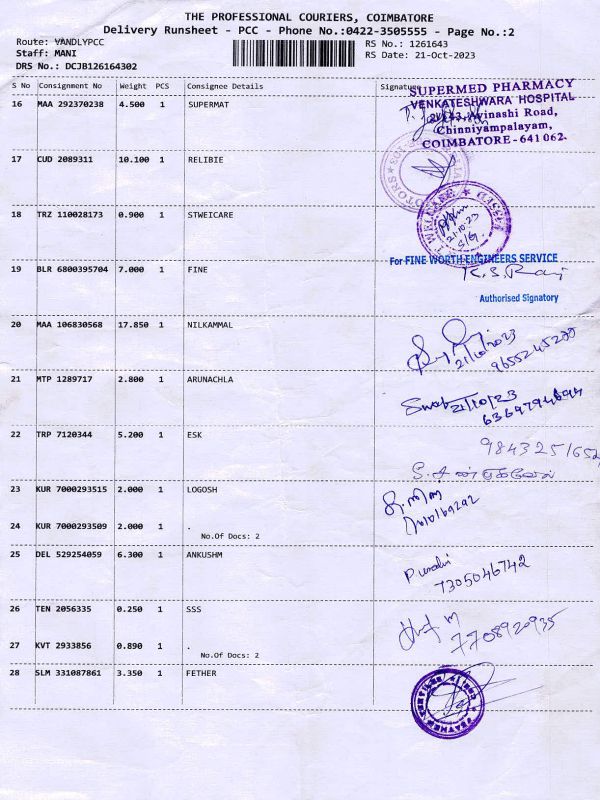 THE PROFESSIONAL COURIERS, COIMBATORE
Delivery Runsheet - PCC - Phone No.:0422-3505555 - Page No.:2
Route: VANDLYPCC
RS No.: 1261643
Staff: MANI
RS Date: 21-Oct-2023
DRS No.: DCJB126164302
S No Consignment No Weight PCS Consignee Details Signature
16 MAA 292370238 4.500 1 SUPERMAT
SUPERMED PHARMACY
VENKATESHWARA HOSPITAL
Avinashi Road,
Chinniyampalayam,
COIMBATORE - 641 062.
17 CUD 2089311 10.100 1 RELIBIE
18 TRZ 110028173 0.900 1 STWEICARE
21.10.23
19 BLR 6800395704 7.000 1 FINE
For FINE WORTH ENGINEERS SERVICE
Authorised Signatory
20 MAA 106830568 17.850 1 NILKAMMAL
21/10/2023
9655245200
21 MTP 1289717 2.800 1 ARUNACHLA
21/10/23
22 TRP 7120344 5.200 1 ESK
9843251652
23 KUR 7000293515 2.000 1 LOGOSH
24 KUR 7000293509 2.000 1 .
No.Of Docs: 2
25 DEL 529254059 6.300 1 ANKUSHM
7305046742
26 TEN 2056335 0.250 1 SSS
7708920935
27 KVT 2933856 0.890 1 .
No.Of Docs: 2
28 SLM 331087861 3.350 1 FETHER